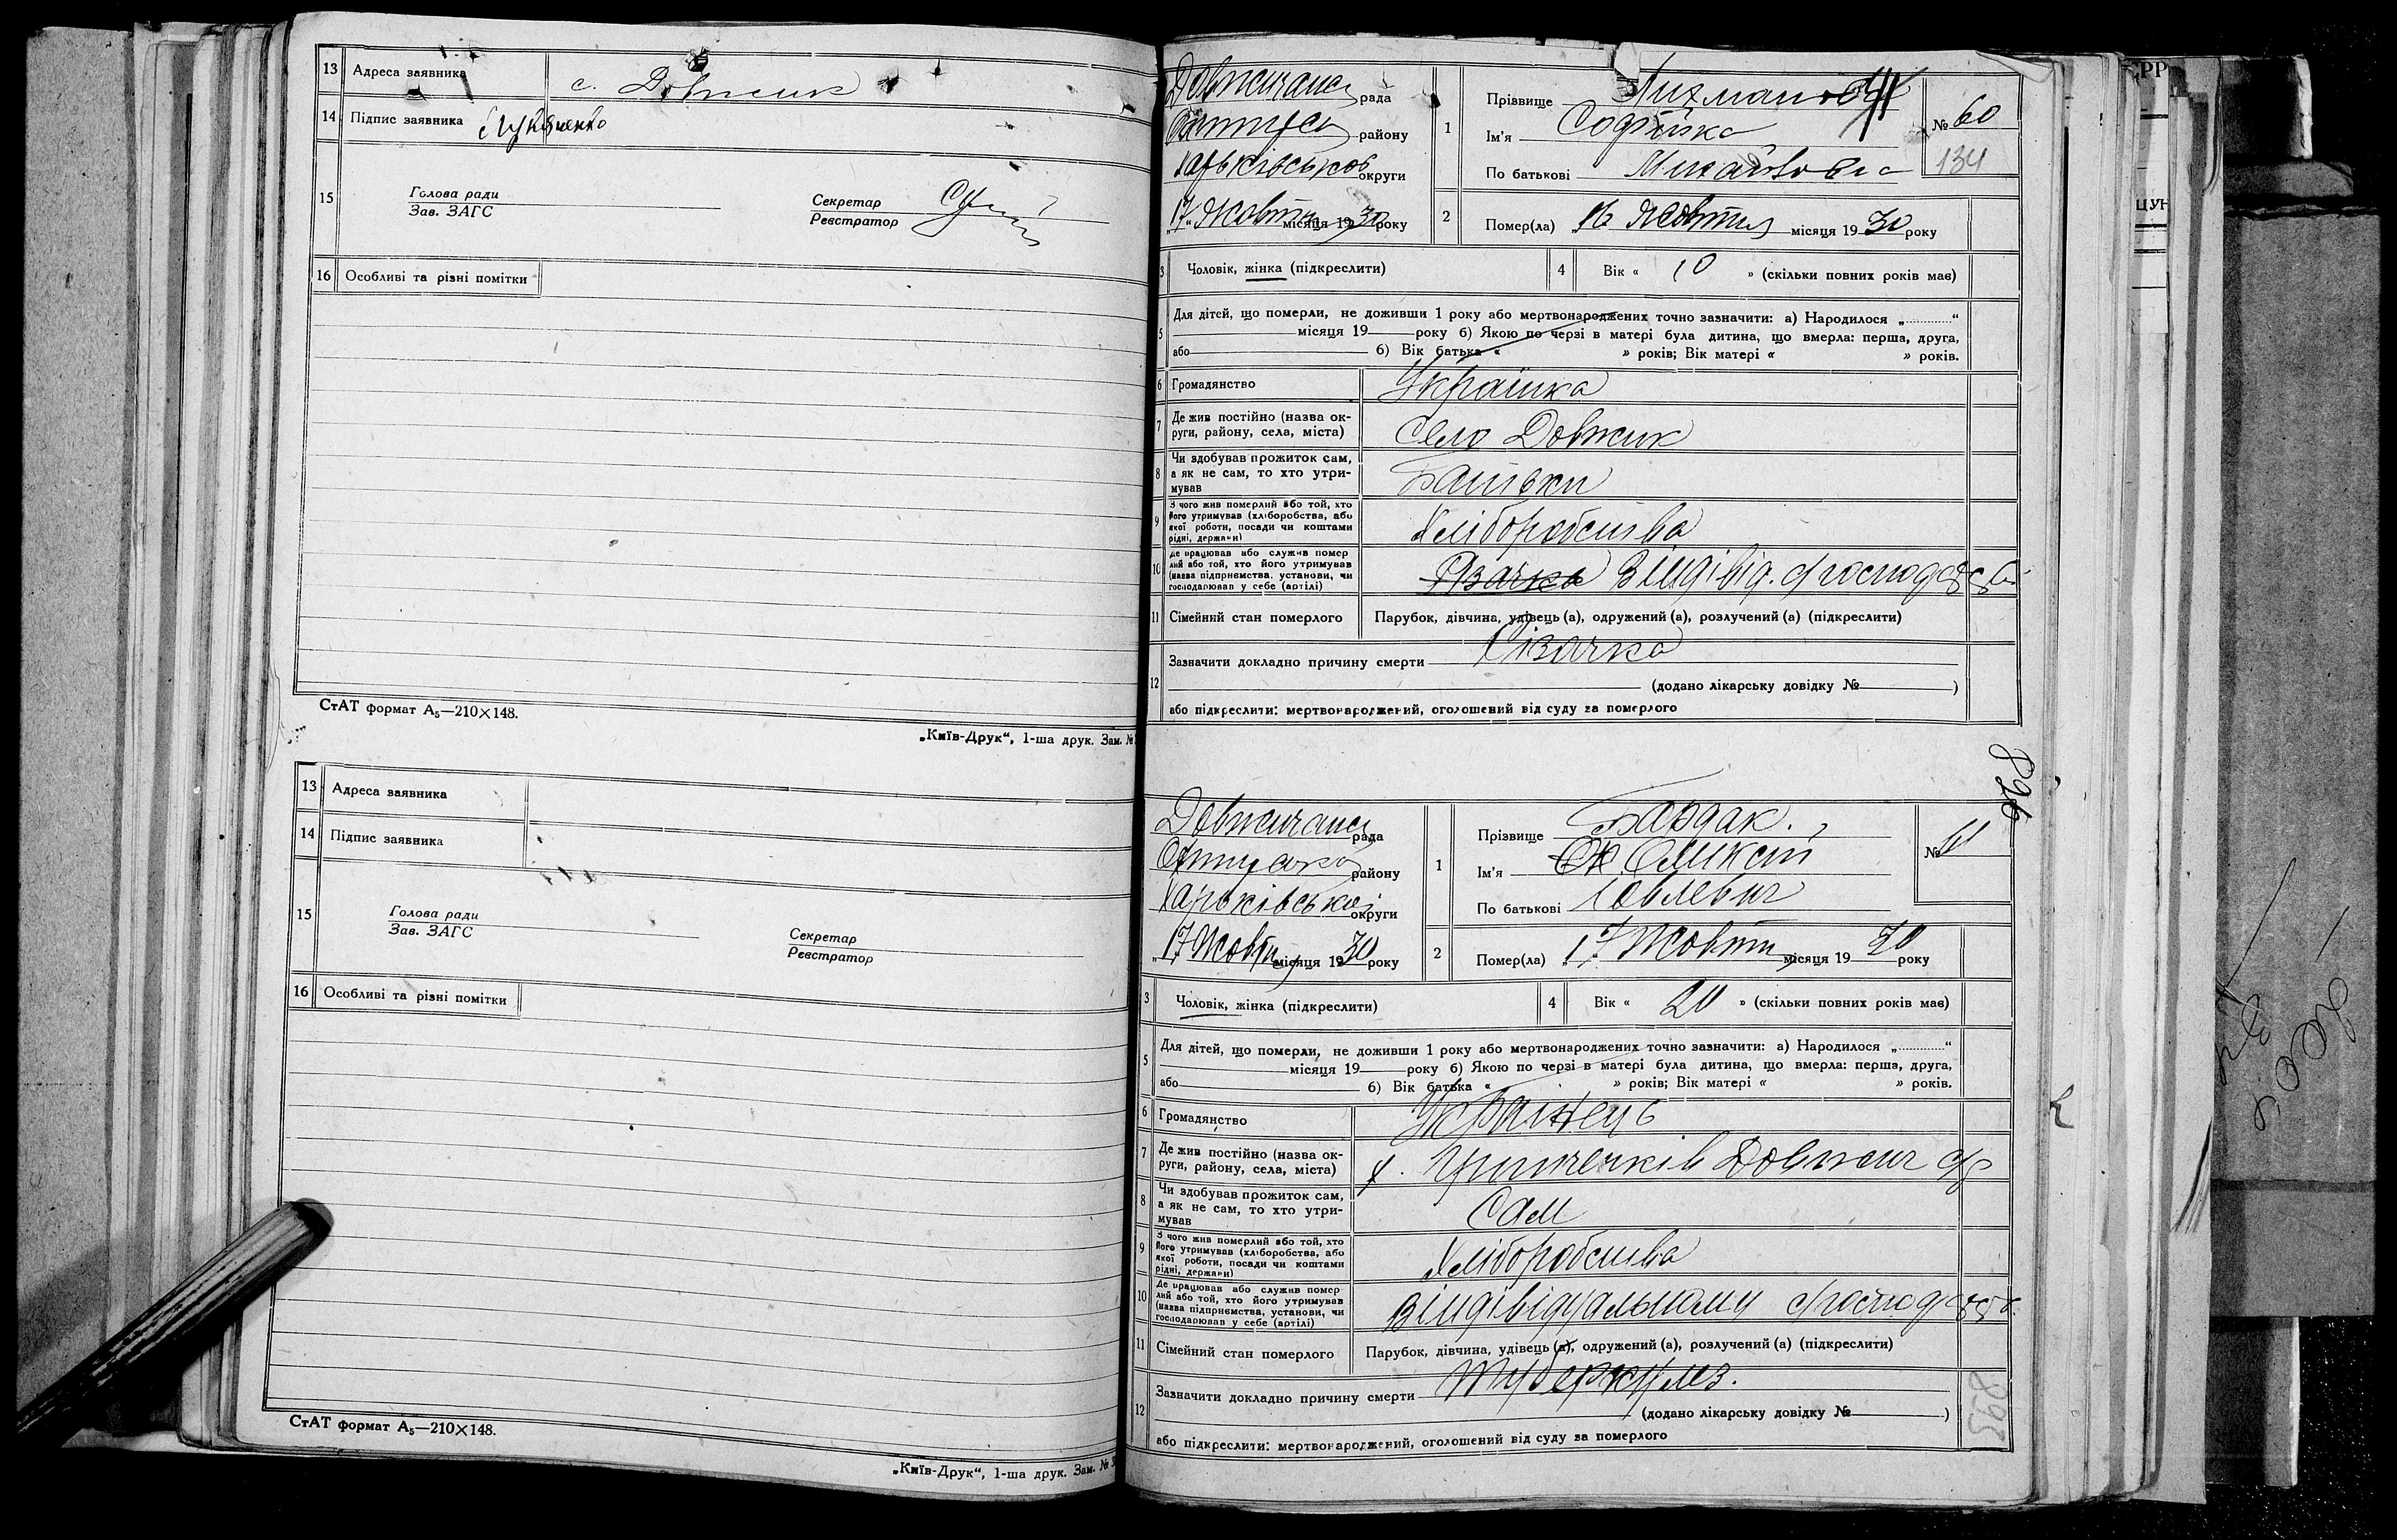 13 Адреса заявника с. Довжик
14 Підпис заявника Лук'яненко
15 Голова ради
Зав. ЗАГС
Секретар
Реєстратор
16 Особливі та різні помітки
СтАТ формат А₅—210×148.
„Київ-Друк“, 1-ша друк. Зам. №
13 Адреса заявника
14 Підпис заявника
15 Голова ради
Зав. ЗАГС
Секретар
Реєстратор
16 Особливі та різні помітки
СтАТ формат А₅—210×148.
„Київ-Друк“, 1-ша друк. Зам. №
рада
району
Харьківськоі округи
„17 Жовтн місяця 1930 року
1 Прізвище
Ім'я Софійка
По батькові Михайловна
№ 60
134
2 Помер(ла) 16 Жовтня місяця 1930 року
3 Чоловік, жінка (підкреслити)
4 Вік « 10 » (скільки повних років має)
5 Для дітей, що померли, не доживши 1 року або мертвонароджених точно зазначити: а) Народилося „............“
місяця 19 року б) Якою по черзі в матері була дитина, що вмерла: перша, друга,
або б) Вік батька « » років; Вік матері « » років.
6 Громадянство Українка
7 Де жив постійно (назва ок-
руги, району, села, міста) Село Довжик
8 Чи здобував прожиток сам,
а як не сам, то хто утри-
мував Батьки
9 З чого жив померлий або той, хто
його утримував (хліборобства, або
якої роботи, посади чи коштами
рідні, держави) Хліборобства
10 Де працював або служив помер
лий або той, хто його утримував
(назва підприємства, установи, чи
господарював у себе (артілі) В індівід.
11 Сімейний стан померлого Парубок, дівчина, удівець (а), одружений (а), розлучений (а) (підкреслити)
12 Зазначити докладно причину смерти
(додано лікарську довідку № )
або підкреслити: мертвонароджений, оголошений від суду за померлого
968
рада
району
Харьківськоі округи
„17 Жовтн місяця 1930 року
1 Прізвище Бардак.
Ім'я Оликсій
По батькові
№ 61
2 Помер(ла) „17 Жовтн місяця 1930 року
3 Чоловік, жінка (підкреслити)
4 Вік « 20 » (скільки повних років має)
5 Для дітей, що померли, не доживши 1 року або мертвонароджених точно зазначити: а) Народилося „............“
місяця 19 року б) Якою по черзі в матері була дитина, що вмерла: перша, друга,
або б) Вік батька « » років; Вік матері « » років.
6 Громадянство Українець
7 Де жив постійно (назва ок-
руги, району, села, міста) х. Гринченків Довжич
8 Чи здобував прожиток сам,
а як не сам, то хто утри-
мував Сам
9 З чого жив померлий або той, хто
його утримував (хліборобства, або
якої роботи, посади чи коштами
рідні, держави) Хліборобства
10 Де працював або служив помер
лий або той, хто його утримував
(назва підприємства, установи, чи
господарював у себе (артілі) В індівідуальному
11 Сімейний стан померлого Парубок, дівчина, удівець (а), одружений (а), розлучений (а) (підкреслити)
12 Зазначити докладно причину смерти Туберкульз.
(додано лікарську довідку № )
або підкреслити: мертвонароджений, оголошений від суду за померлого
895